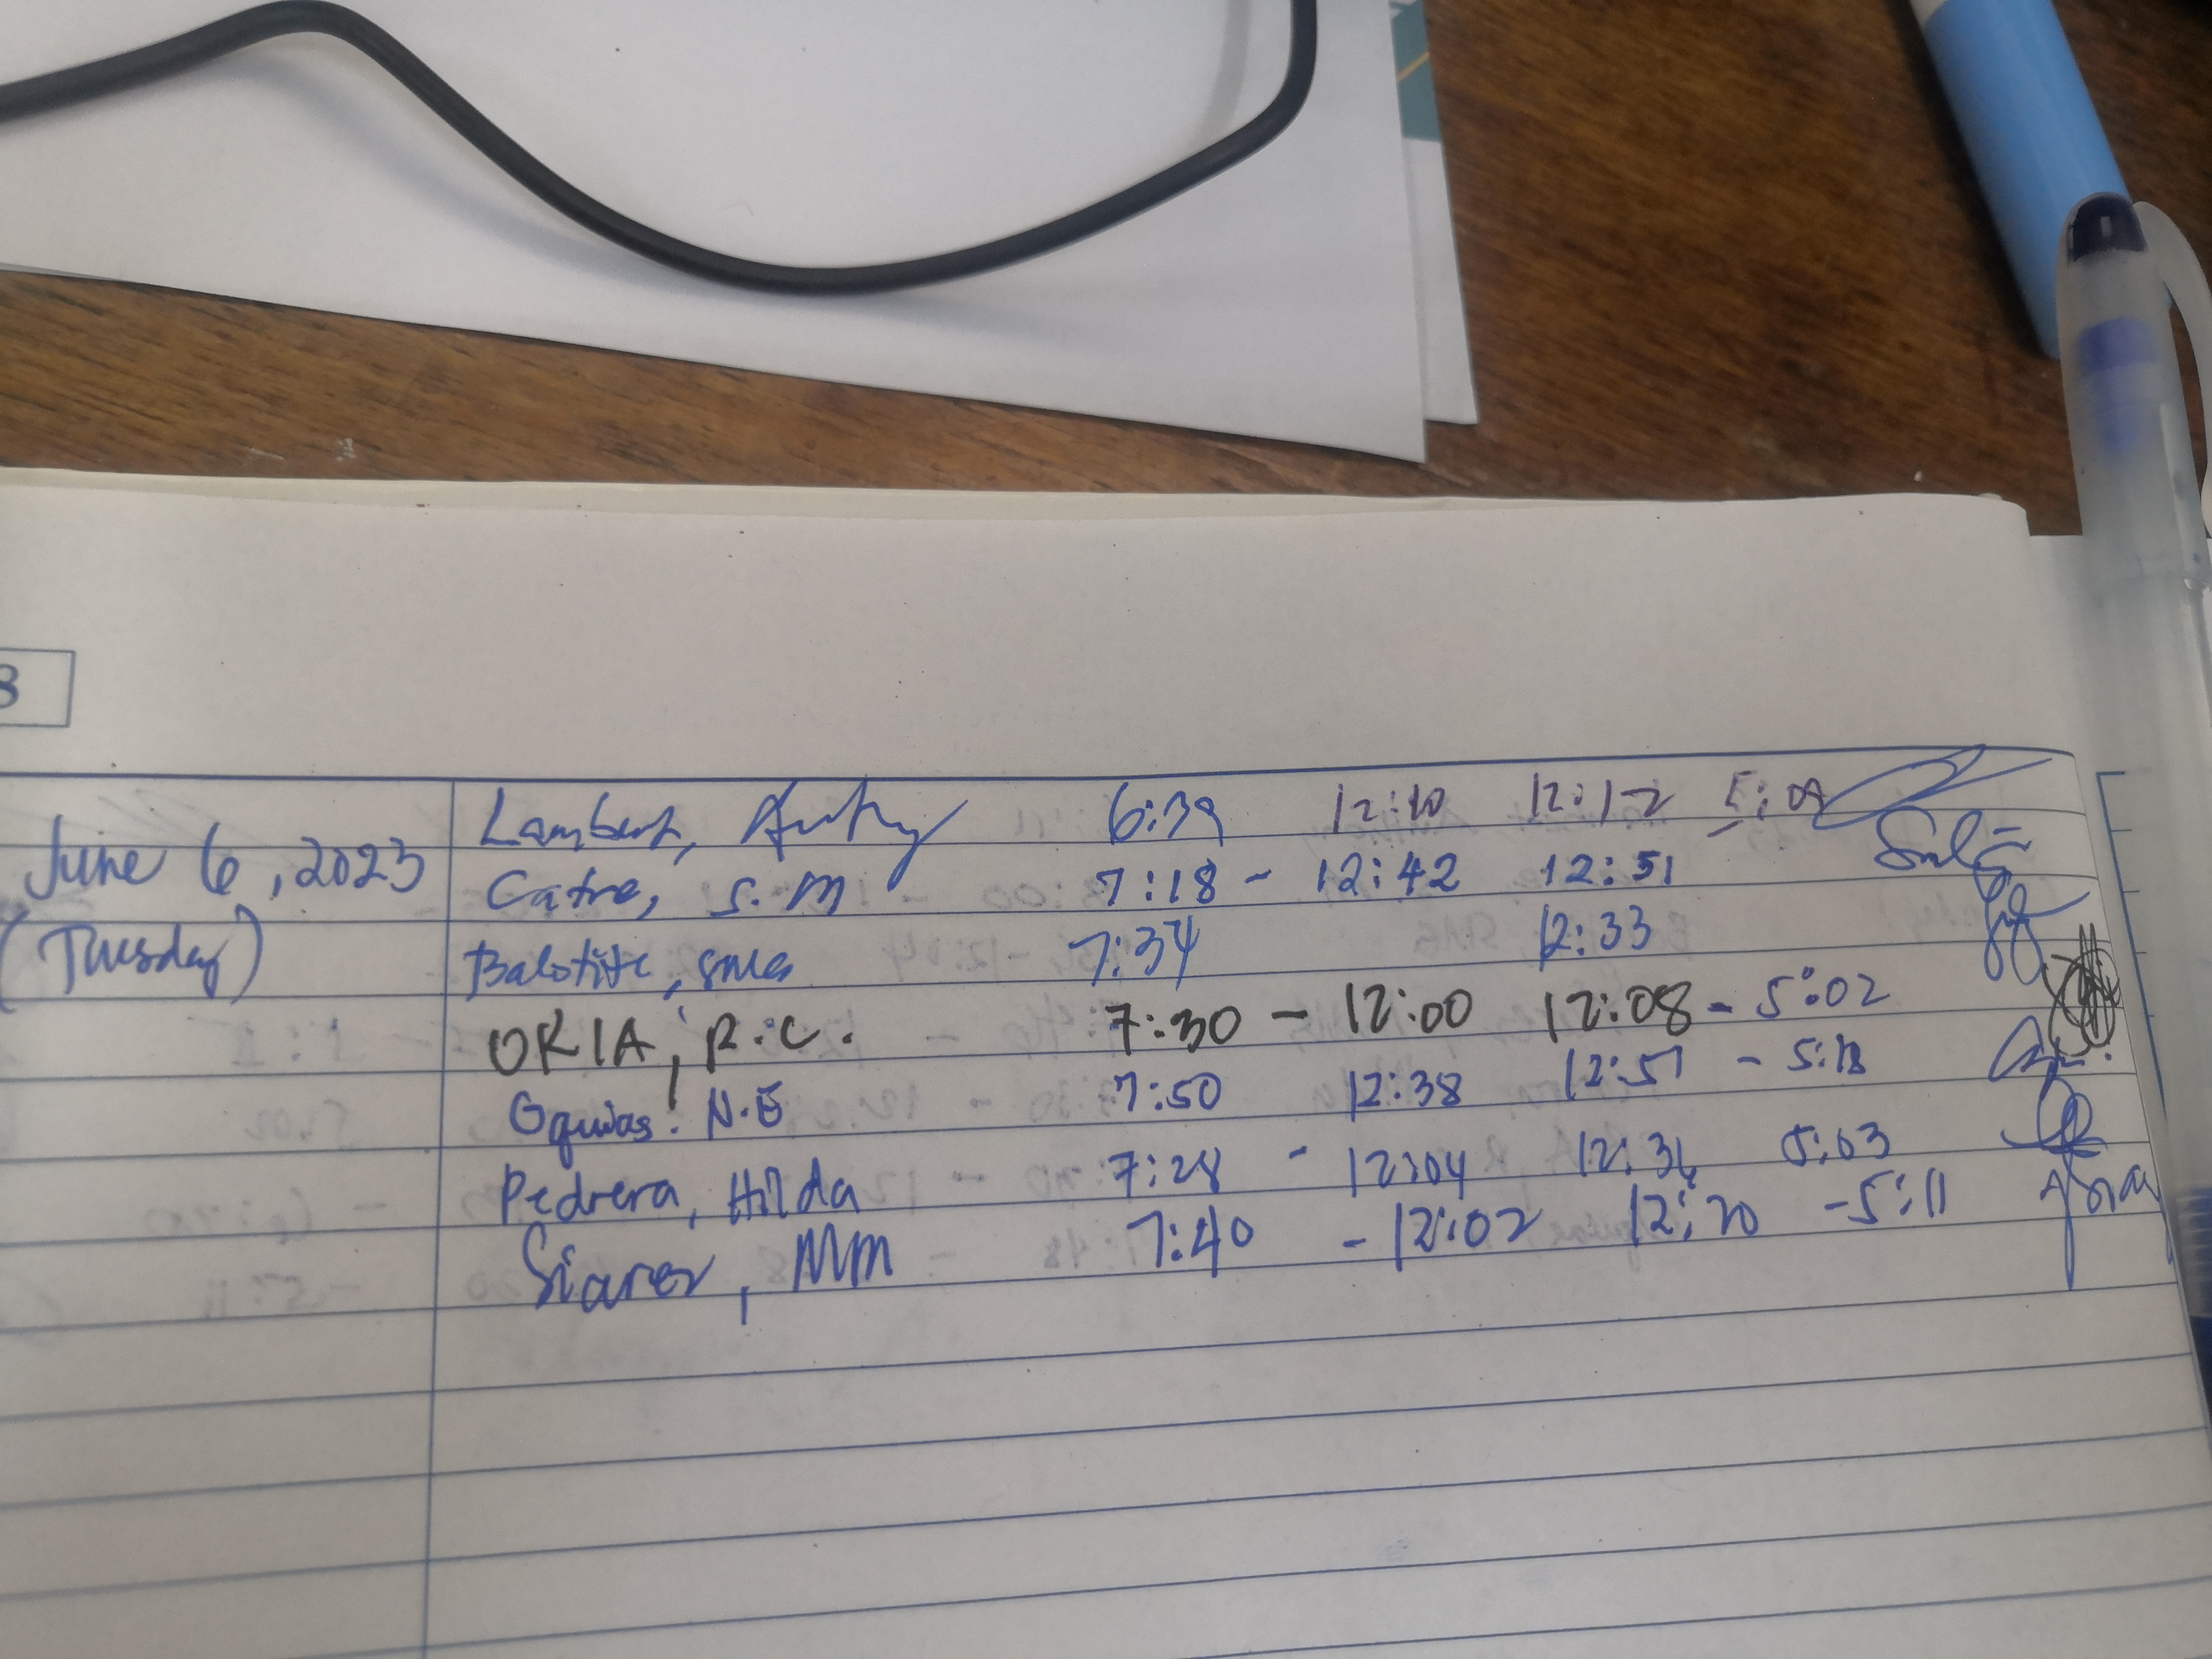 3
June 6, 2023
(Tuesday)
Lambert, 6:39 12:10 12:12 5:09
Catre, S.M 7:18 - 12:42 12:51
Balotite, 7:34 12:33
ORIA, R.C. 7:30 - 12:00 12:08 - 5:02
Oquias. N.E 7:50 12:38 12:51 - 5:13
Pedrera, Hilda 7:28 - 12:04 12:36 5:03
Siarez, MM 7:40 - 12:02 12:20 - 5:11